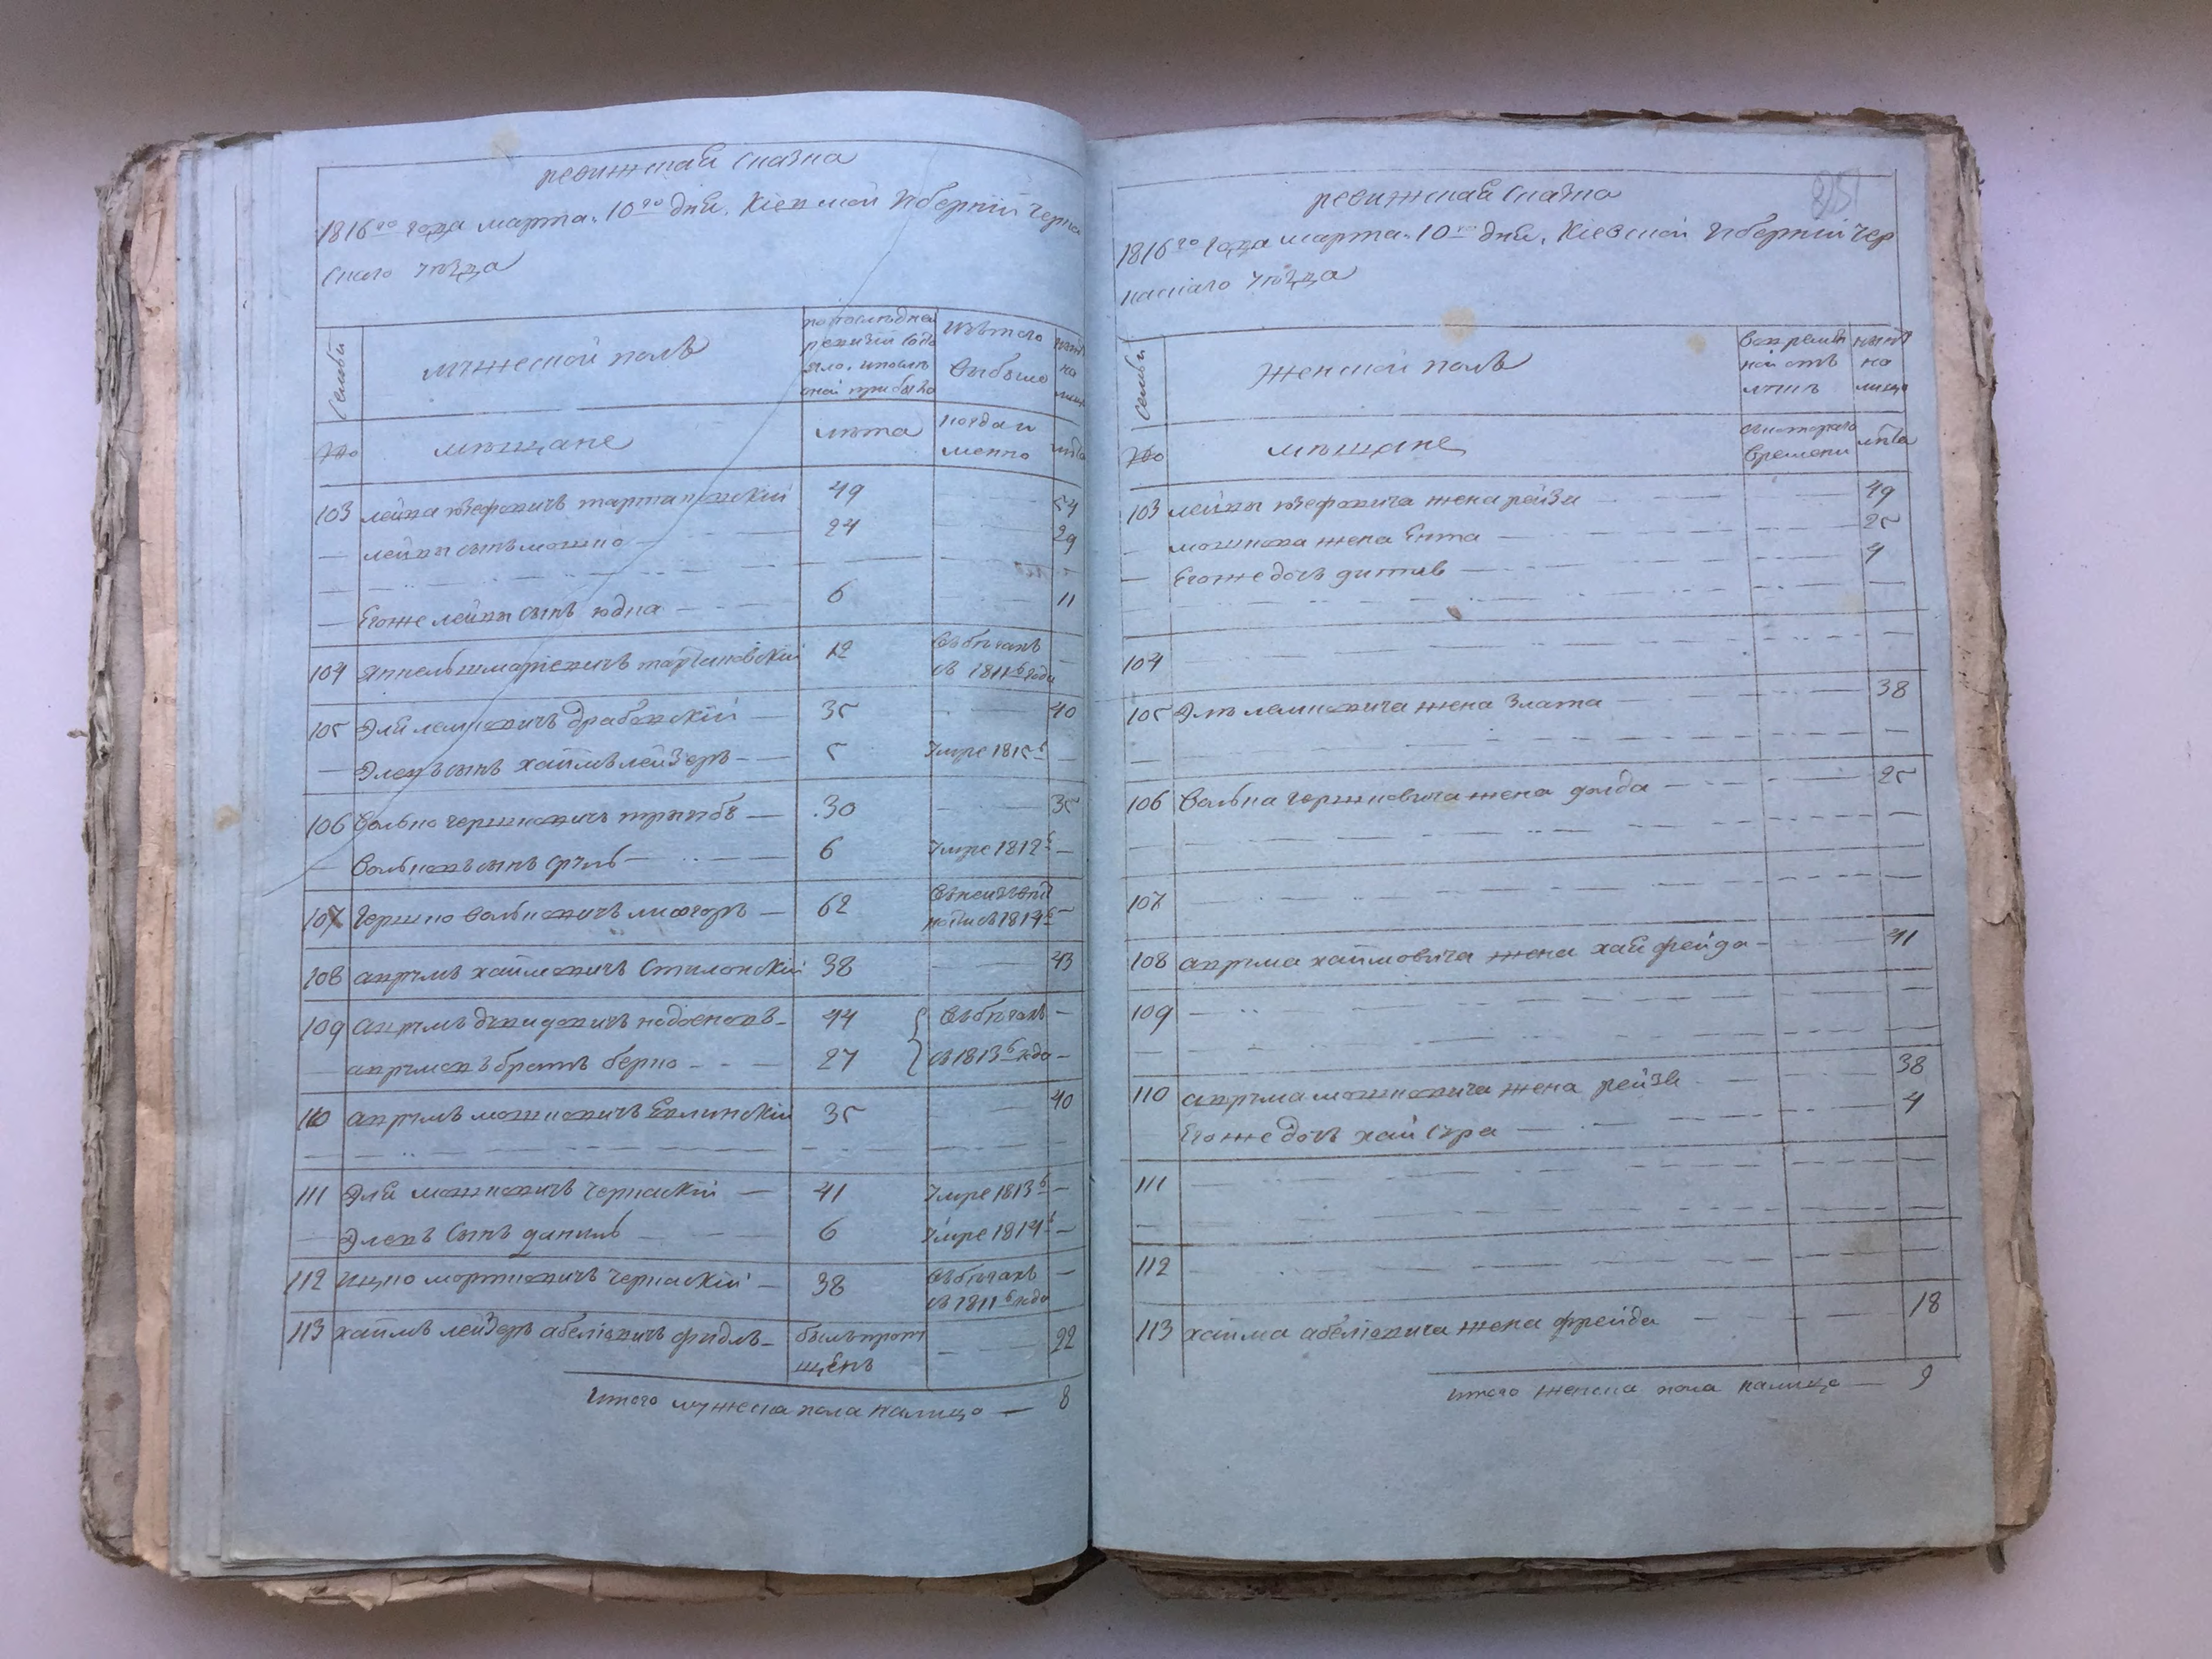 ревижская сказка
1816го года марта 10го дня. Кіевской Губерніи Черка
скаго уѣзда
семьи
мужеской полъ
по последней
ревизіи состо
яло, и после
оной прибыло
изъ того
выбыло
ныне
на
лицо
№
мѣщане
лѣта
когда и
менно
лѣта
103 лейка юзефовичъ тартаковскій 49 54
лейки сынъ мошко 24 29
Егоже лейки сынъ юдка 6 11
104 Янкель шмаріевичъ тартаковскій 12 въ бѣгахъ
съ 1811го года
105 Эля лемковичъ драбовскій 35 40
Элевъ сынъ хаимъ лейзеръ 5 Умре 1815
106 Волько гершковичъ 30 35
Вольковъ сынъ сруль 6 Умре 1812
107 Гершко Вольковичъ 62
1814
108 аврумъ хаимовичъ 38 43
109 аврумъ давидовичъ 44 въ бѣгахъ
аврумовъ братъ берко 27 съ 1813го года
110 аврумъ мошковичъ 35 40
111 Эля мошковичъ черкаскій 41 Умре 1813
Элевъ сынъ данилъ 6 Умре 1814
112 Ицко мортковичъ черкаскій 38 въ бѣгахъ
съ 1811го года
113 хаимъ лейзеръ абеліовичъ фидлъ былъ проп
щенъ 22
итого мужеска пола налицо 8
ревижская сказка
1816го года марта 10го дня. Кіевской Губерніи Чер
каскаго уѣзда
семьи
женской полъ
во времен
ной отъ
лучке
ныне
на
лицо
№
мѣщане
съ котораго
времени
лѣта
103 лейки юзефовича жена рейзя 49
мошкова жена Ента 25
Егоже дочь 4
104
105 Эля лемковича жена злата 38
106 Волька гершковича жена голда 25
107
108 аврума хаимовича жена хая фрейда 41
109
110 аврума мошковича жена рейзя 38
Егоже дочь хая сура 4
111
112
113 хаима абеліовича жена фрейда 18
итого женска пола налицо 9